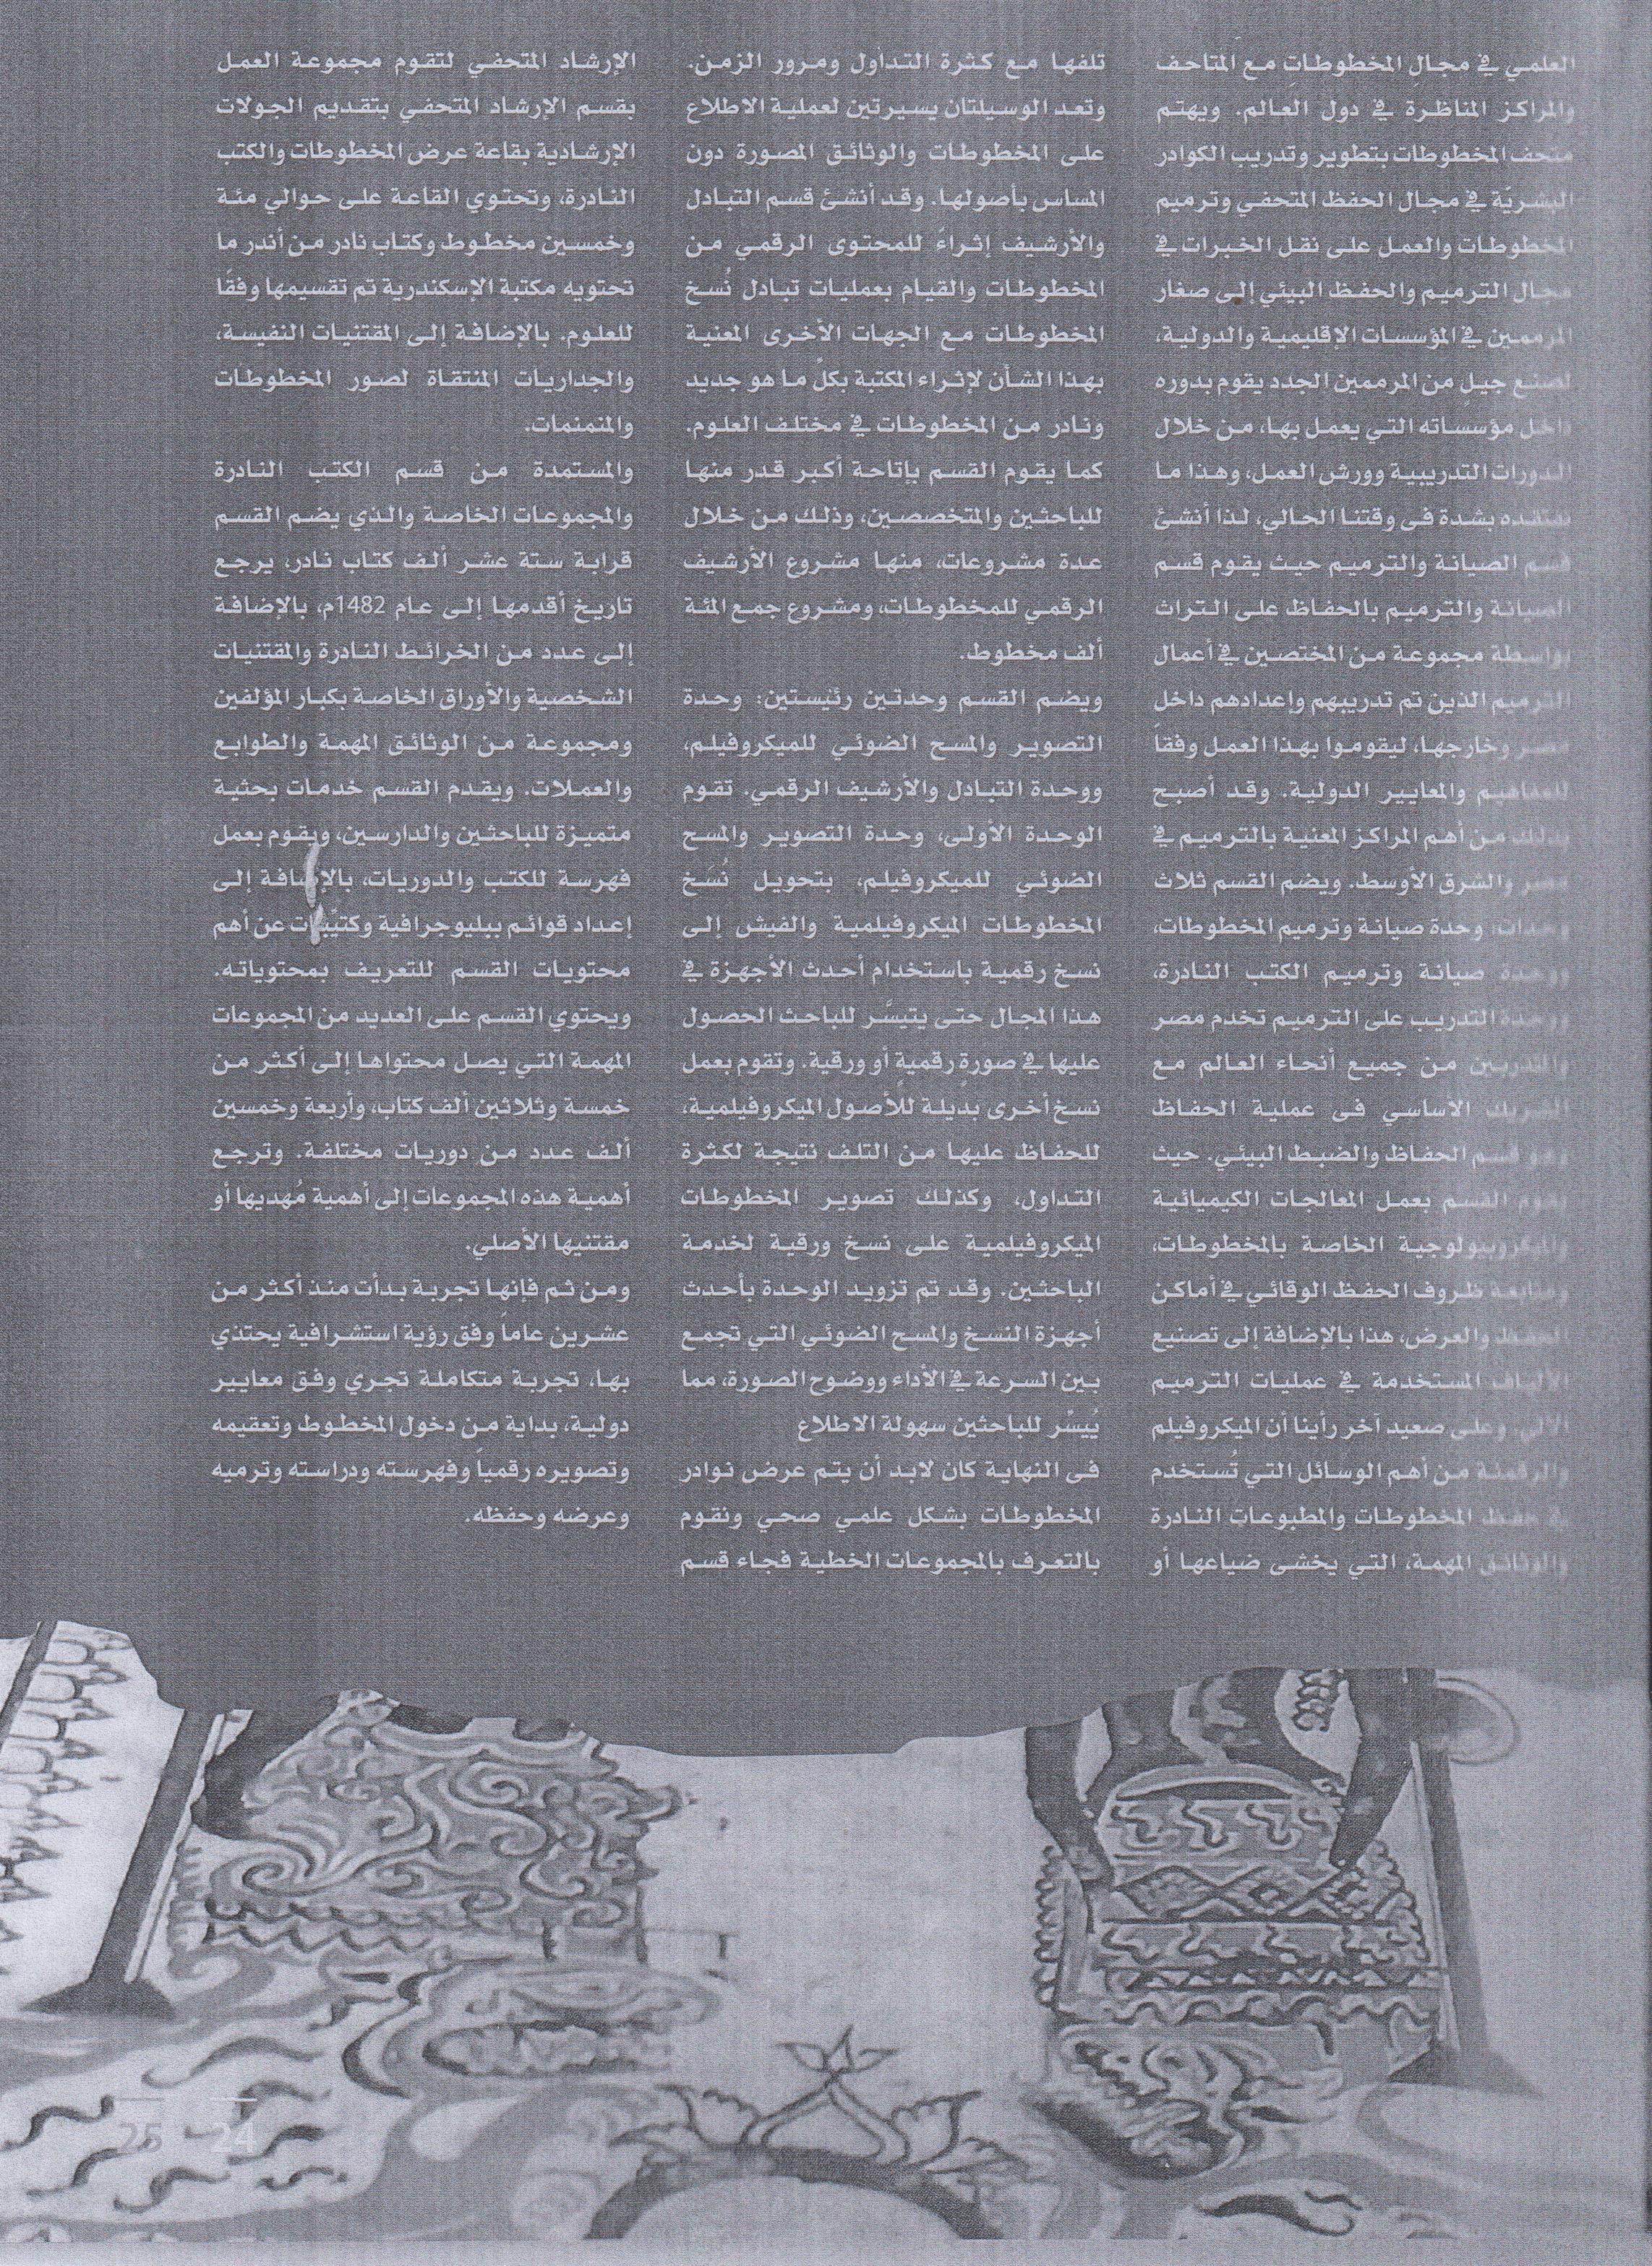 العلمي في مجال المخطوطات مع المتاحف
والمراكز المناظرة في دول العالم. ويهتم
متحف المخطوطات بتطوير وتدريب الكوادر
البشريّة في مجال الحفظ المتحفي وترميم
المخطوطات والعمل على نقل الخبرات في
مجال الترميم والحفظ البيئي إلى صغار
المرممين في المؤسسات الإقليمية والدولية،
لصنع جيلٍ من المرممين الجدد يقوم بدوره
داخل مؤسساته التي يعمل بها، من خلال
الدورات التدريبية وورش العمل، وهذا ما
نفتقده بشدة فى وقتنا الحالي، لذا أنشئ
قسم الصيانة والترميم حيث يقوم قسم
الصيانة والترميم بالحفاظ على التراث
بواسطة مجموعة من المختصين في أعمال
الترميم الذين تم تدريبهم وإعدادهم داخل
مصر وخارجها، ليقوموا بهذا العمل وفقاً
للمفاهيم والمعايير الدولية. وقد أصبح
بذلك من أهم المراكز المعنية بالترميم في
مصر والشرق الأوسط. ويضم القسم ثلاث
وحدات: وحدة صيانة وترميم المخطوطات،
ووحدة صيانة وترميم الكتب النادرة،
ووحدة التدريب على الترميم تخدم مصر
والمتدربين من جميع أنحاء العالم مع
الشريك الاساسي فى عملية الحفاظ
وهو قسم الحفاظ والضبط البيئي. حيث
يقوم القسم بعمل المعالجات الكيميائية
والميكروبيولوجية الخاصة بالمخطوطات،
ومتابعة ظروف الحفظ الوقائي في أماكن
الحفظ والعرض، هذا بالإضافة إلى تصنيع
الألياف المستخدمة في عمليات الترميم
الآلي. وعلى صعيد آخر رأينا أن الميكروفيلم
والرقمنة من أهم الوسائل التي تُستخدم
في حفظ المخطوطات والمطبوعات النادرة
والوثائق المهمة، التي يخشى ضياعها أو
تلفها مع كثرة التداول ومرور الزمن.
وتعد الوسيلتان يسيرتين لعملية الاطلاع
على المخطوطات والوثائق المصورة دون
المساس بأصولها. وقد أنشئ قسم التبادل
والأرشيف إثراءً للمحتوى الرقمي من
المخطوطات والقيام بعمليات تبادل نُسخ
المخطوطات مع الجهات الأخرى المعنية
بهذا الشأن لإثراء المكتبة بكلِّ ما هو جديد
ونادر من المخطوطات في مختلف العلوم.
كما يقوم القسم بإتاحة أكبر قدر منها
للباحثين والمتخصصين، وذلك من خلال
عدة مشروعات، منها مشروع الأرشيف
الرقمي للمخطوطات، ومشروع جمع المئة
ألف مخطوط.
ويضم القسم وحدتين رئيستين: وحدة
التصوير والمسح الضوئي للميكروفيلم،
ووحدة التبادل والأرشيف الرقمي. تقوم
الوحدة الأولى، وحدة التصوير والمسح
الضوئي للميكروفيلم، بتحويل نُسَخ
المخطوطات الميكروفيلمية والفيش إلى
نسخ رقمية باستخدام أحدث الأجهزة في
هذا المجال حتى يتيسَّر للباحث الحصول
عليها في صورةٍ رقميةٍ أو ورقية. وتقوم بعمل
نسخ أخرى بديلة للأصول الميكروفيلمية،
للحفاظ عليها من التلف نتيجة لكثرة
التداول، وكذلك تصوير المخطوطات
الميكروفيلمية على نسخ ورقية لخدمة
الباحثين. وقد تم تزويد الوحدة بأحدث
أجهزة النسخ والمسح الضوئي التي تجمع
بين السرعة في الأداء ووضوح الصورة، مما
يُيسِّر للباحثين سهولة الاطلاع
فى النهاية كان لابد أن يتم عرض نوادر
المخطوطات بشكل علمي صحي ونقوم
بالتعرف بالمجموعات الخطية فجاء قسم
الإرشاد المتحفي لتقوم مجموعة العمل
بقسم الإرشاد المتحفي بتقديم الجولات
الإرشادية بقاعة عرض المخطوطات والكتب
النادرة، وتحتوي القاعة على حوالي مئة
وخمسين مخطوط وكتاب نادر من أندر ما
تحتويه مكتبة الإسكندرية تم تقسيمها وفقًا
للعلوم. بالإضافة إلى المقتنيات النفيسة،
والجداريات المنتقاة لصور المخطوطات
والمنمنمات.
والمستمدة من قسم الكتب النادرة
والمجموعات الخاصة والذي يضم القسم
قرابة ستة عشر ألف كتاب نادر، يرجع
تاريخ أقدمها إلى عام 1482م، بالإضافة
إلى عدد من الخرائط النادرة والمقتنيات
الشخصية والأوراق الخاصة بكبار المؤلفين
ومجموعة من الوثائق المهمة والطوابع
والعملات. ويقدم القسم خدمات بحثية
متميزة للباحثين والدارسين، ويقوم بعمل
فهرسة للكتب والدوريات، بالإضافة إلى
إعداد قوائم ببليوجرافية وكتيِّبات عن أهم
محتويات القسم للتعريف بمحتوياته.
ويحتوي القسم على العديد من المجموعات
المهمة التي يصل محتواها إلى أكثر من
خمسة وثلاثين ألف كتاب، وأربعة وخمسين
ألف عدد من دوريات مختلفة. وترجع
أهمية هذه المجموعات إلى أهمية مُهديها أو
مقتنيها الأصلي.
ومن ثم فإنها تجربة بدأت منذ أكثر من
عشرين عاماً وفق رؤية استشرافية يحتذي
بها، تجربة متكاملة تجري وفق معايير
دولية، بداية من دخول المخطوط وتعقيمه
وتصويره رقمياً وفهرسته ودراسته وترميه
وعرضه وحفظه.
25 24